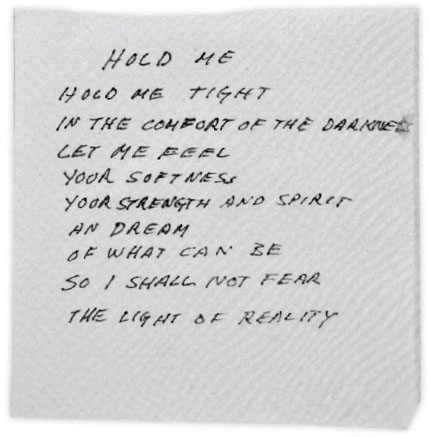 HOLD ME
HOLD ME TIGHT
IN THE COMFORT OF THE DARKNESS
LET ME FEEL
YOUR SOFTNESS
YOUR STRENGTH AND SPIRIT
AN DREAM
OF WHAT CAN BE
SO I SHALL NOT FEAR
THE LIGHT OF REALITY